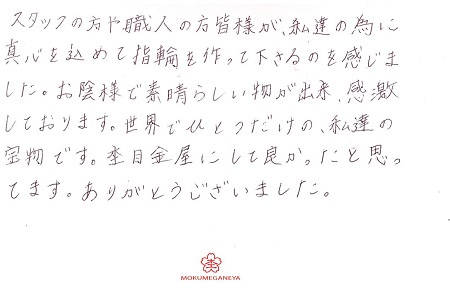 スタッフの方や職人の方皆様が、私達の為に
真心を込めて指輪を作って下さるのを感じま
した。お陰様で素晴らしい物が出来、感激
しております。世界でひとつだけの、私達の
宝物です。杢目金屋にして良かったと思っ
てます。ありがとうございました。
MOKUMEGANEYA